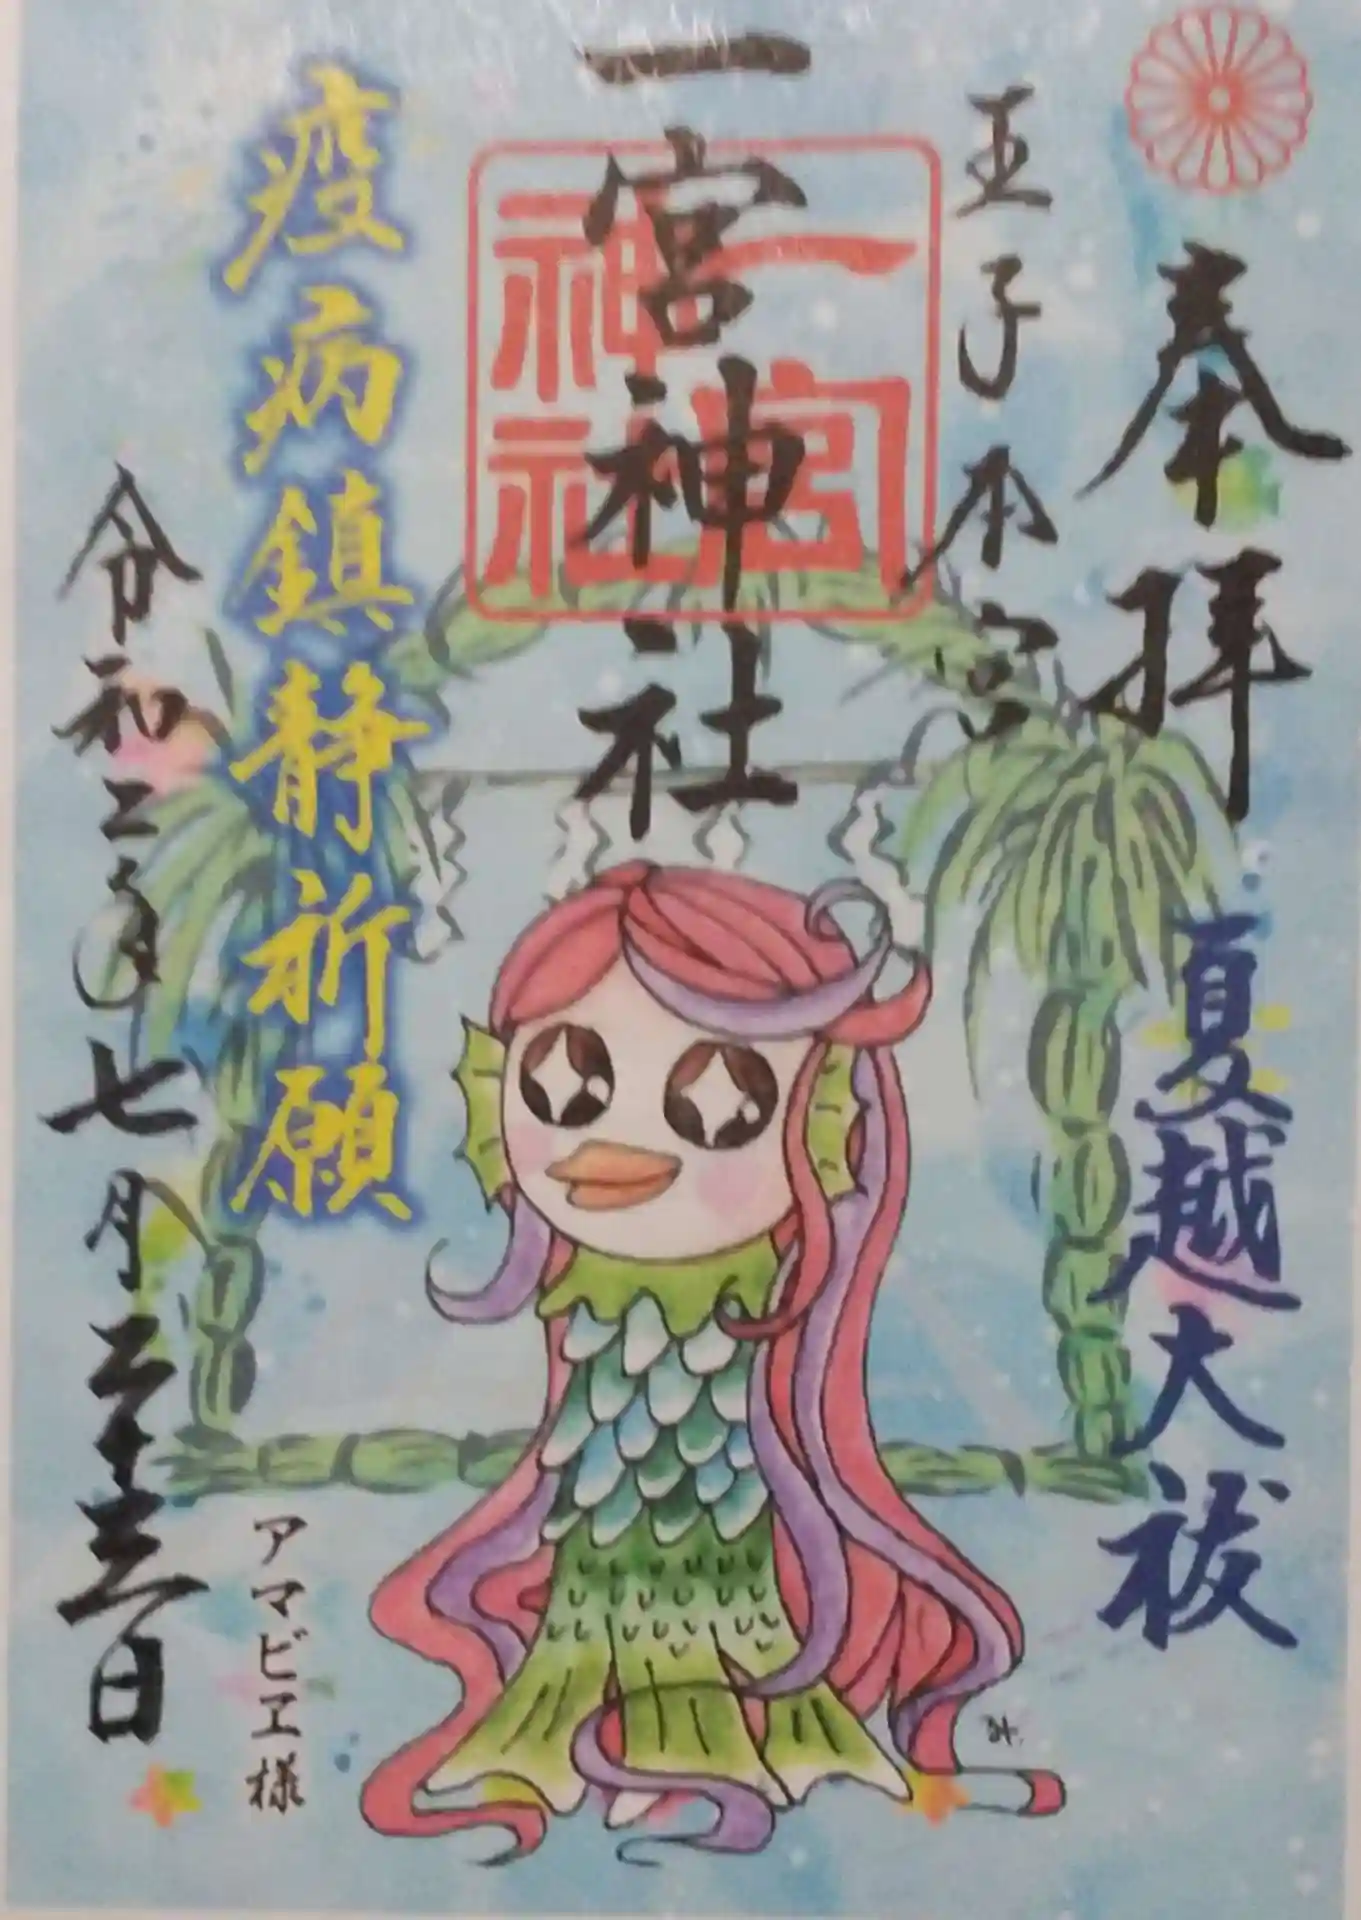 奉拝
夏越大祓
王子本宮
一宮神社
一宮
神社
疫病鎮静祈願
アマビヱ様
令和二年七月二十三日